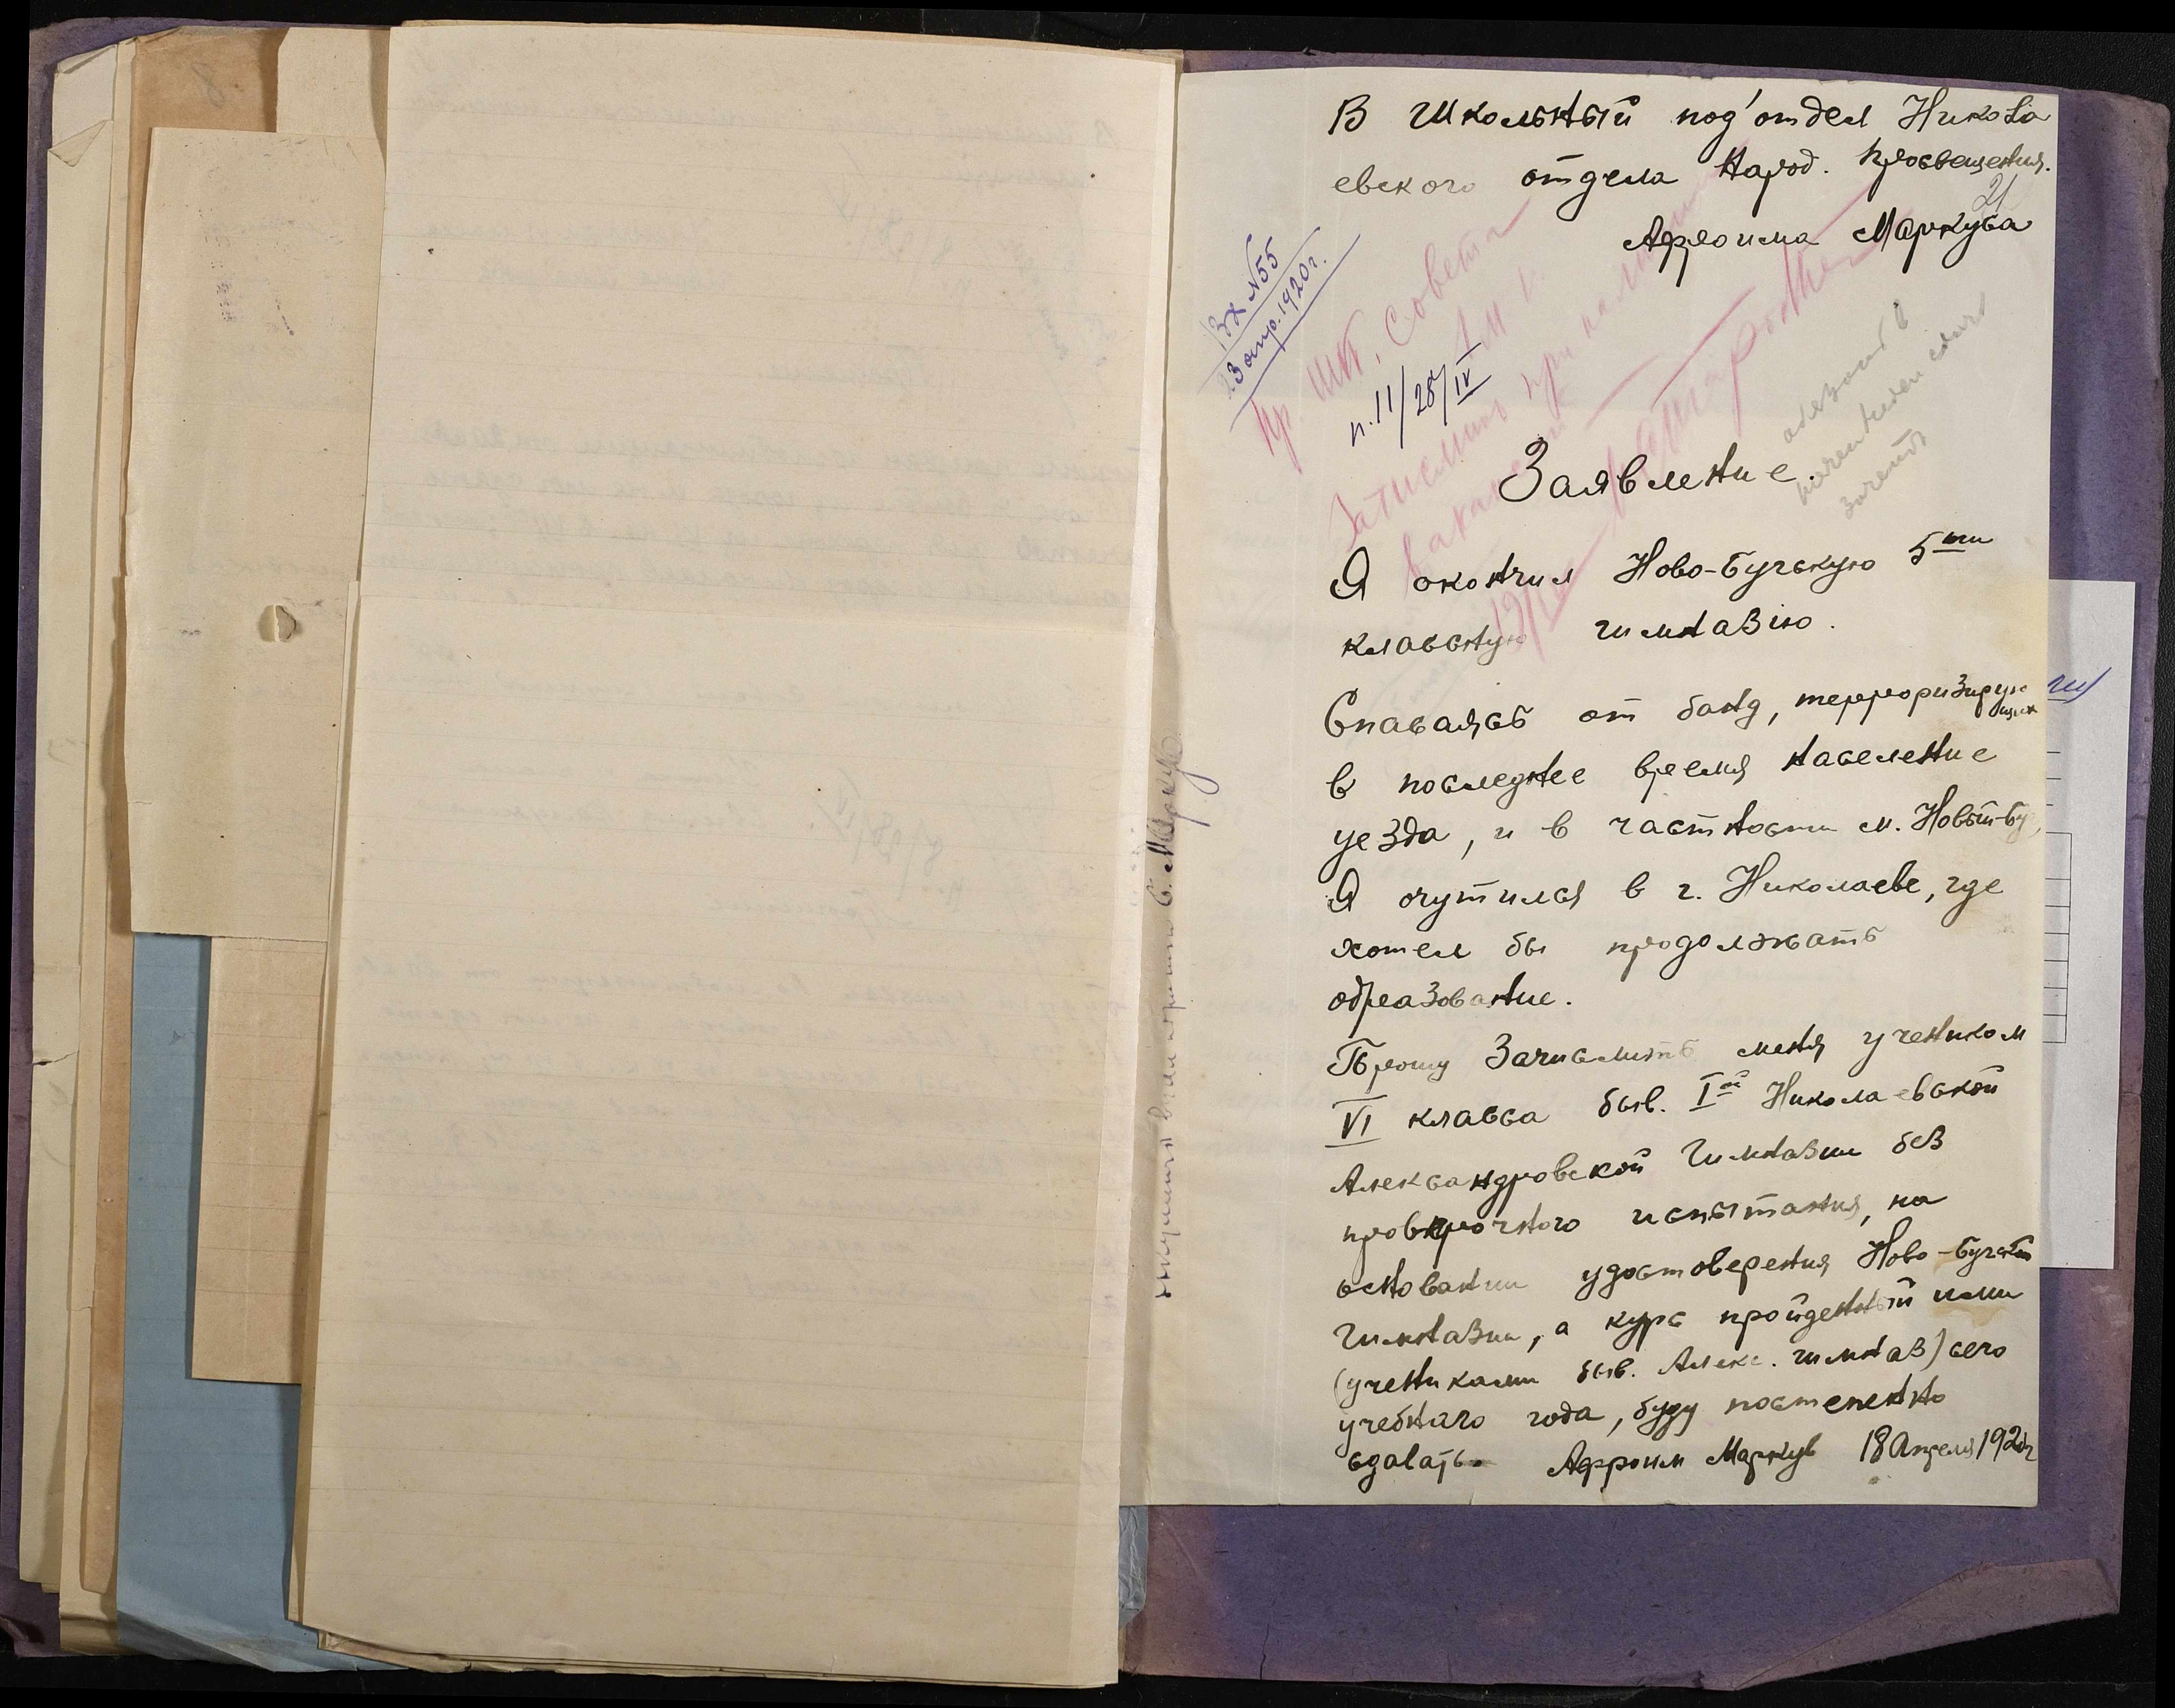 В Школьный под'отдел Никола
евского отдела Народ. Просвещения.
21
Афроима Маркуса
Вх №55
23 апр. 1920 г.
Пр. Шк. Совета
п. 11/28/IV
Заявление.
Я окончил Ново-Бугскую 5ти
классную гимназiю.
Спасаясь от банд, терроризирую
щих
в последнее время население
уезда, и в частности м. Новый-Буг,
Я очутился в г. Николаеве, где
хотел бы продолжать
образование.
Прошу Зачислить меня учеником
VI класса быв. Iой Николаевской
Александровской Гимназии без
проверочного испытания, на
основании удостоверения Ново-Бугской
Гимназии, а курс пройденный ими
(учениками быв. Алекс. гимназ) сего
учебнаго года, буду постепенно
сдавать Афроим Маркус 18 Апреля 1920 г